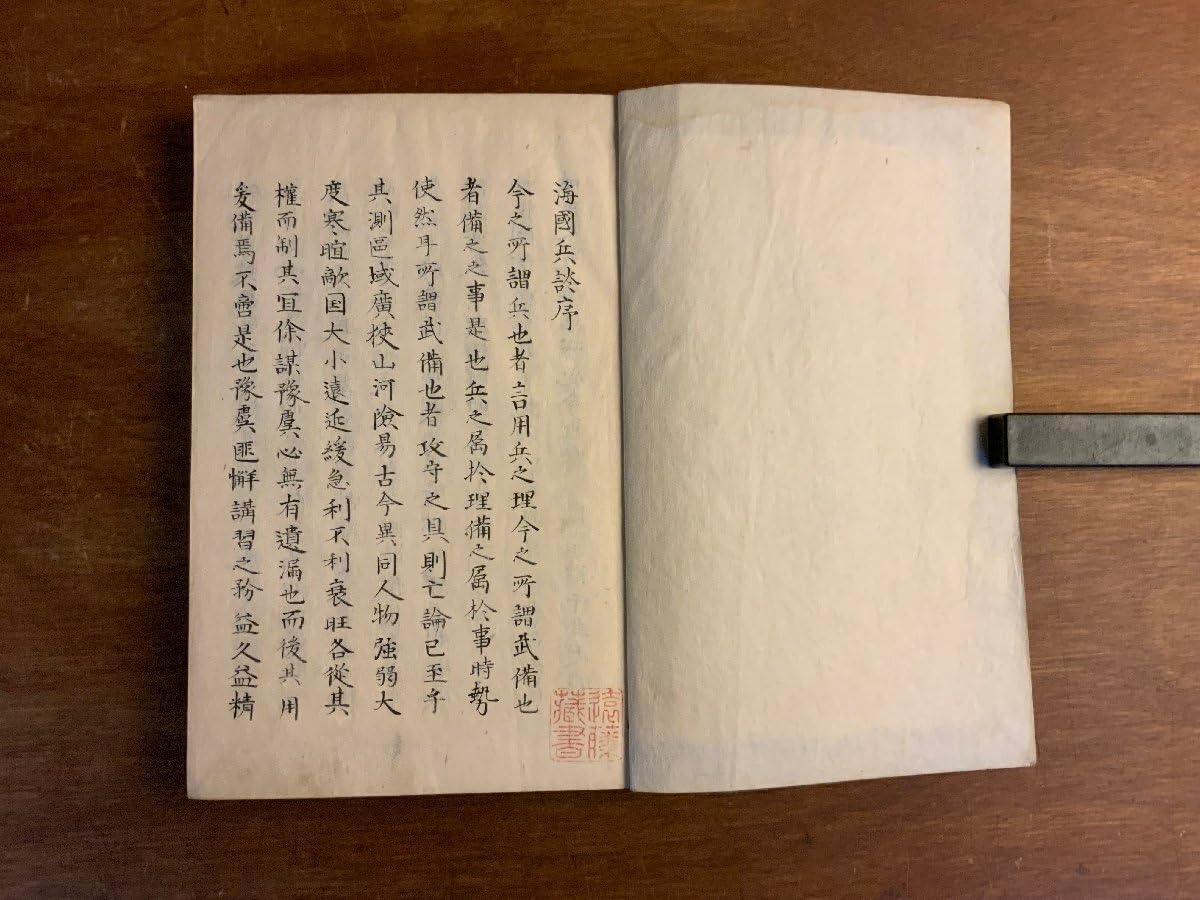 海國兵談序
今之所謂兵也者言用兵之理今之所謂武備也
者備之之事是也兵之属於理備之属於事時勢
使然耳所謂武備也者攻守之具則亡論已至乎
其測區域廣狹山河險易古今異同人物強弱大
度寒暄敵国大小遠近緩急利不利衰旺各從其
權而制其冝徐謀豫虞心無有遺漏也而後其用
爰備焉不啻是也豫虞匪懈講習之務益久益精
遠藤
藏書